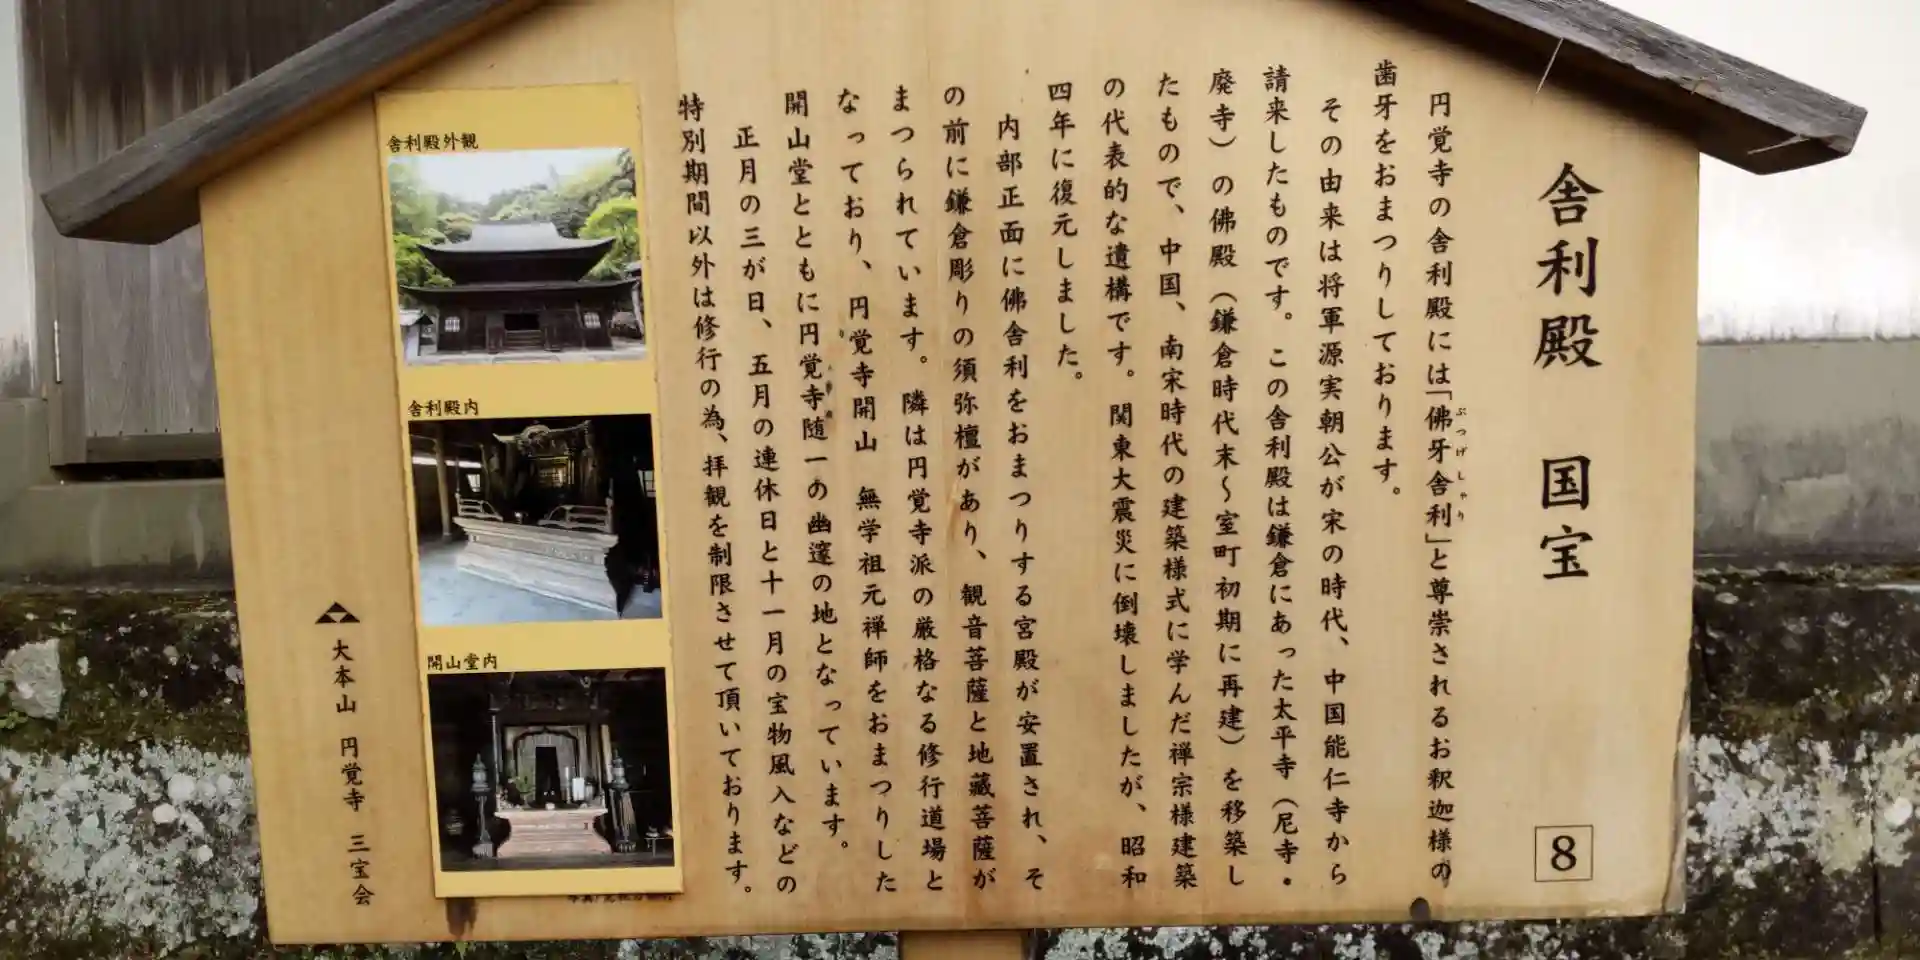 舎利殿 国宝
8
円覚寺の舎利殿には「佛牙舎利」と尊崇されるお釈迦様の
ぶつげしゃり
歯牙をおまつりしております。
その由来は将軍源実朝公が宋の時代、中国能仁寺から
請来したものです。この舎利殿は鎌倉にあった太平寺（尼寺・
廃寺）の佛殿（鎌倉時代末～室町初期に再建）を移築し
たもので、中国、南宋時代の建築様式に学んだ禅宗様建築
の代表的な遺構です。関東大震災に倒壊しましたが、昭和
四年に復元しました。
内部正面に佛舎利をおまつりする宮殿が安置され、そ
の前に鎌倉彫りの須弥檀があり、観音菩薩と地蔵菩薩が
まつられています。隣は円覚寺派の厳格なる修行道場と
なっており、円覚寺開山 無学祖元禅師をおまつりした
開山堂とともに円覚寺随一の幽邃の地となっています。
正月の三が日、五月の連休日と十一月の宝物風入などの
特別期間以外は修行の為、拝観を制限させて頂いております。
舎利殿外観
舎利殿内
開山堂内
大本山 円覚寺 三宝会